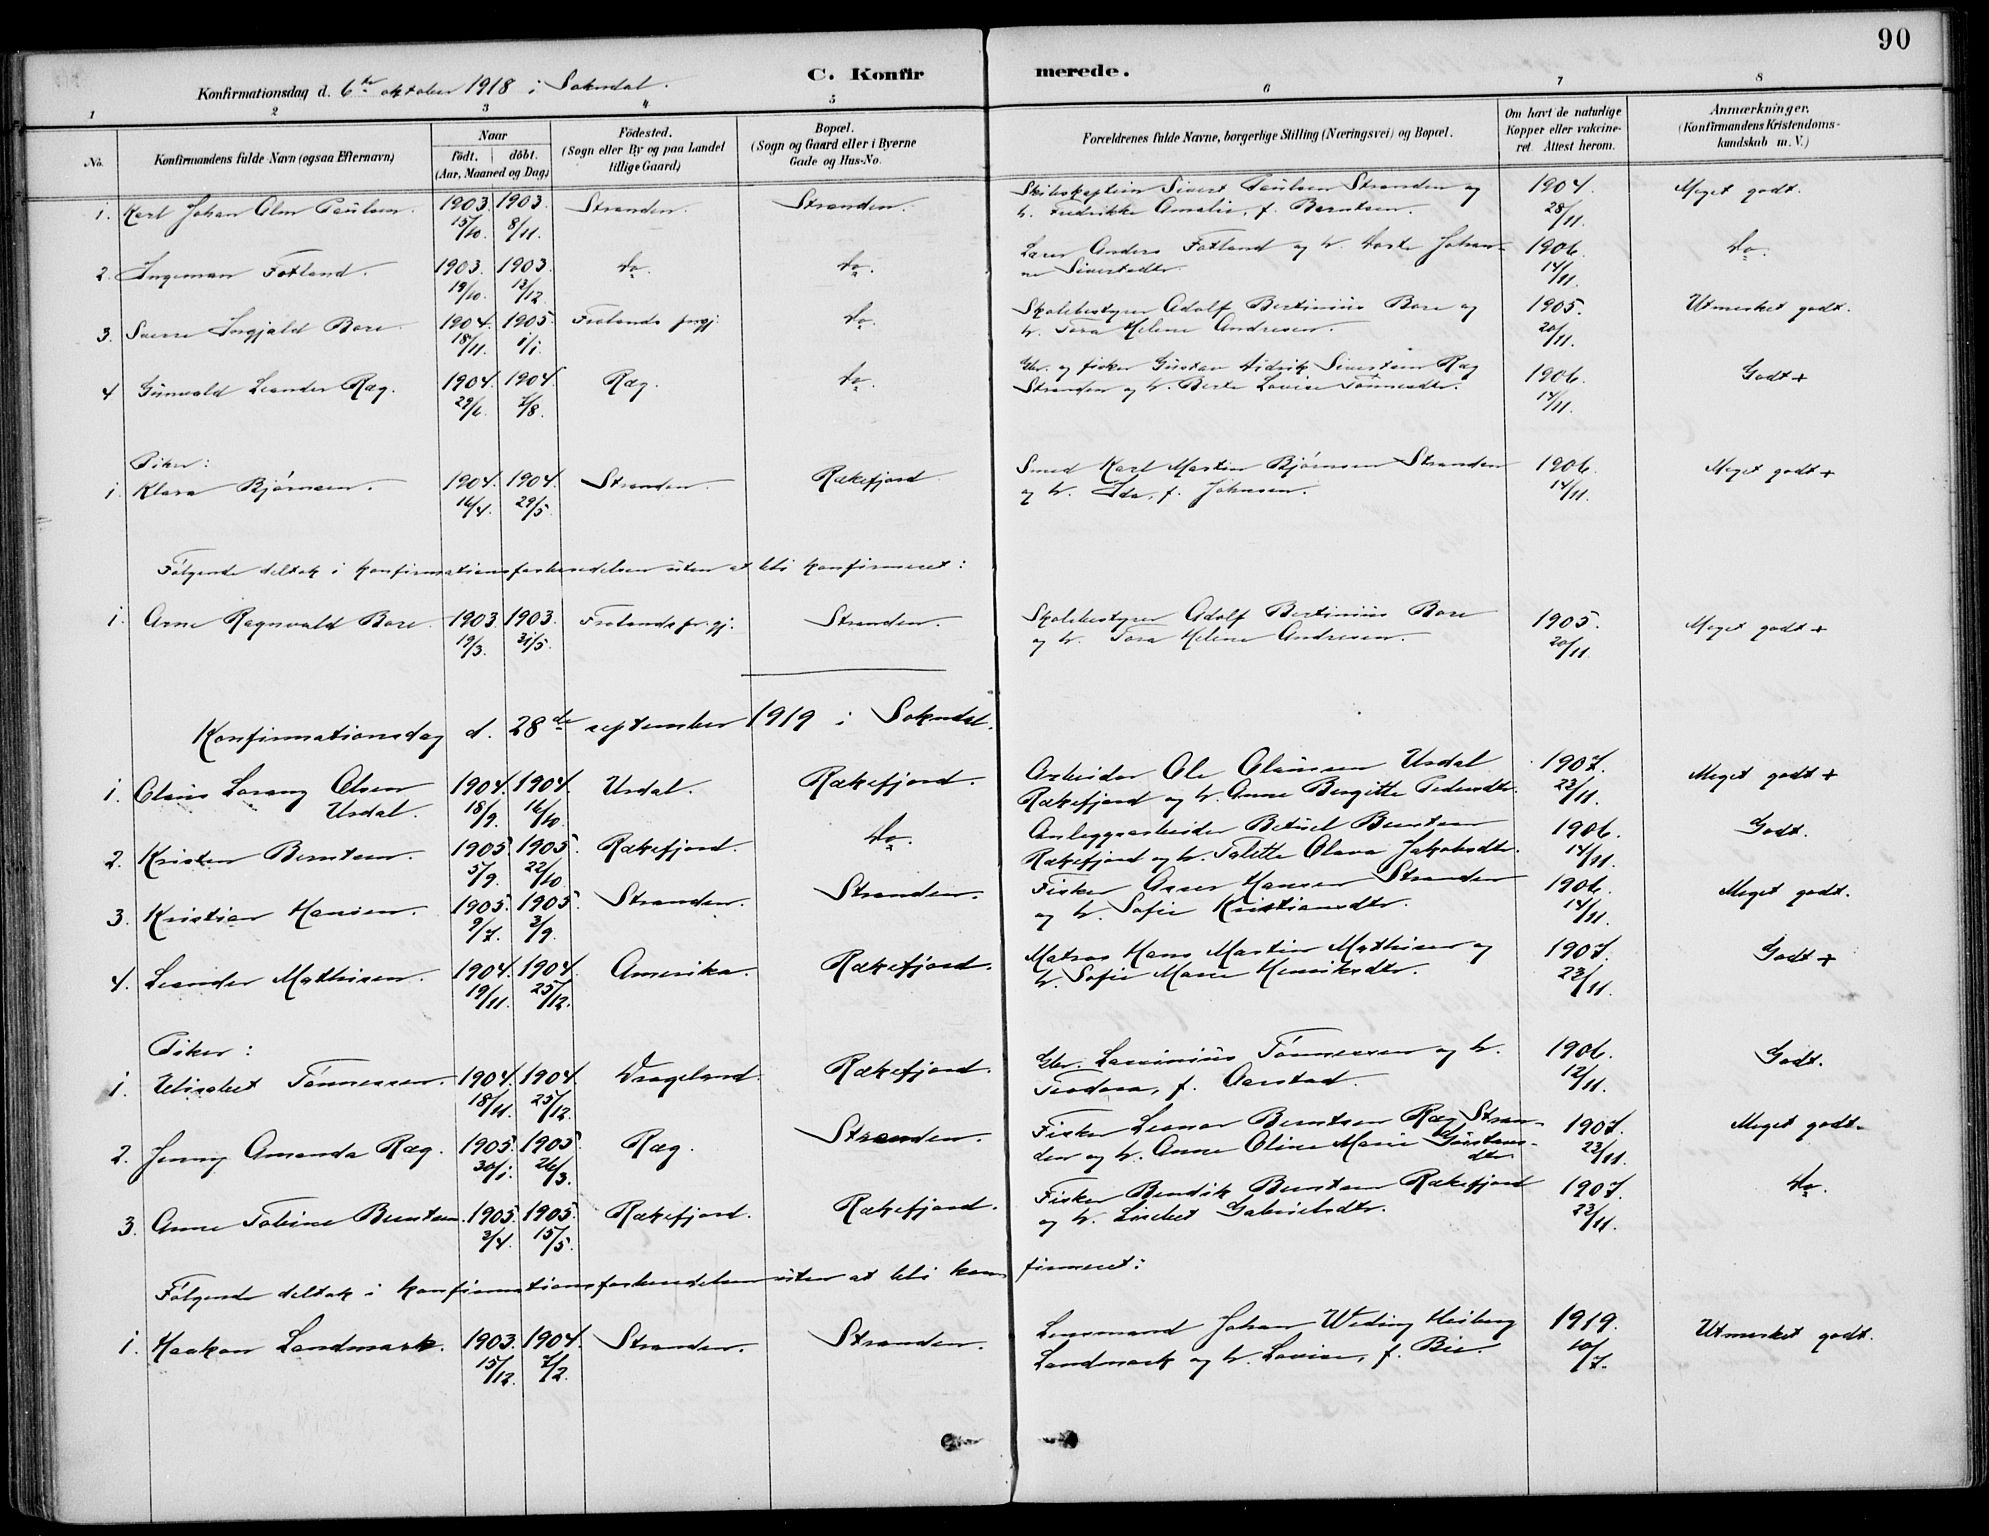 90
Konfirmationsdag d. 6te oktober 1918 i Sokndal.
C. Konfirmerede.
1 2 3 4 5 6 7 8
No. Konfirmandens fulde Navn (ogsaa Efternavn) Naar födt. döbt. (Aar, Maaned og Dag) Födested. (Sogn eller By og paa Landet tillige Gaard) Bopæl. (Sogn og Gaard eller i Byerne Gade og Hus-No. Forældrenes fulde Navne, borgerlige Stilling (Næringsvei) og Bopæl. Om havt de naturlige Kopper eller vakcineret. Attest herom. Anmærkninger. (Konfirmandens Kristendomskundskab m. V.)
1. Karl Johan Paulsen. 1903. 1903. Stranden. Stranden. Skibskaptein Sivert Paulsen Stranden og 1904. Meget godt.
15/10. 8/11. h. Fredrikke Amalie, f. Berntsen. 28/11.
2. Ingeman Fotland. 1903. 1903. do. do. Lærer Anders Fotland og h. Johan- 1906. do.
19/10. 13/12 ne Sivertsdtr. 14/11.
3. Sverre Ingjald Bore. 1904. 1905. Frolands prgj. do. Skolebestyrer Adolf Bertinius Bore og 1905. Utmerket godt.
18/11. 1/1. h. Tora Helene Andresen. 20/11.
4 Gunvald Leander Ræg. 1904. 1904. Ræg. do. Gbr. og fisker Gustav Didrik Sivertsen Ræg 1906. Godt +
29/6. 7/8. Stranden og h. Berte Lovise Tønnesdtr. 14/11.
Piker:
1 Klara Bjørnsen. 1904. 1904. Stranden. Rækefjord Smed Karl Martin Bjørnsen Stranden 1906. Meget godt +
16/4. 29/5. og h. Ida, f. Johnsen. 14/11.
Følgende deltok i konfirmationsforberedelsen uten at bli konfirmeret:
1. Arne Ragnvald Bore. 1903. 1903. Frolands pr.gj. Stranden. Skolebestyrer Adolf Bertinius Bore 1905. Meget godt +
19/3. 31/5. og h. Tora Helene Andresen. 20/11
Konfirmationsdag d. 28de september 1919 i Sokndal.
1. Olaus Lorang Olsen 1904. 1904. Urdal. Rækefjord. Arbeider Ole Olausen Urdal 1907. Meget godt +
Urdal. 18/9. 16/10. Rækefjord og h. Anne Bergitte Pedersdtr. 23/11.
2. Kristen Berntsen. 1905. 1905. Rækefjord. do. Anlegsarbeider Betuel Berntsen 1906. Godt.
5/9. 22/10 Rækefjord og h. Talette Olava Jakobsdtr. 14/11.
3. Kristian Hansen. 1905. 1905. Stranden. Stranden. Fisker Asser Hansen Stranden 1906. Meget godt.
9/7. 3/9. og h. Sofie Kristiansdtr. 14/11.
4. Leander Mathisen. 1904. 1904. Amerika. Rækefjord. Matros Hans Martin Mathisen og 1907. Godt +
19/11. 25/12. h. Sofie Marie Henriksdtr. 23/11.
Piker:
1. Elisabet Tønnessen. 1904. 1904. Drageland. Rækefjord. Gbr. Lauinius Tønnessen og h. 1906. Godt.
18/11. 25/12. Teodora, f. Aarstad. 12/11.
2. Jenny Amanda Ræg. 1905. 1905. Ræg. Stranden. Fisker Leonor Berntsen Ræg Stran- 1907. Meget godt.
30/1. 26/3. den og h. Anne Oline Marie Gustavs- 23/11.
dtr.
3. Anne Tobine Berntsen. 1905. 1905. Rækefjord. Rækefjord. Fisker Bendik Berntsen Rækefjord 1907. do.
2/4. 15/5. og h. Lisebet Gabrielsdtr. 23/11.
Følgende deltok i konfirmationsforberedelsen uten at bli konfirmeret:
1. Haakon Landmark. 1903. 1904. Stranden. Stranden. Lensmand Johan Weding Heiberg 1919. Utmerket godt.
15/12. 7/2. Landmark og h. Lovise, f. Bie. 10/7.